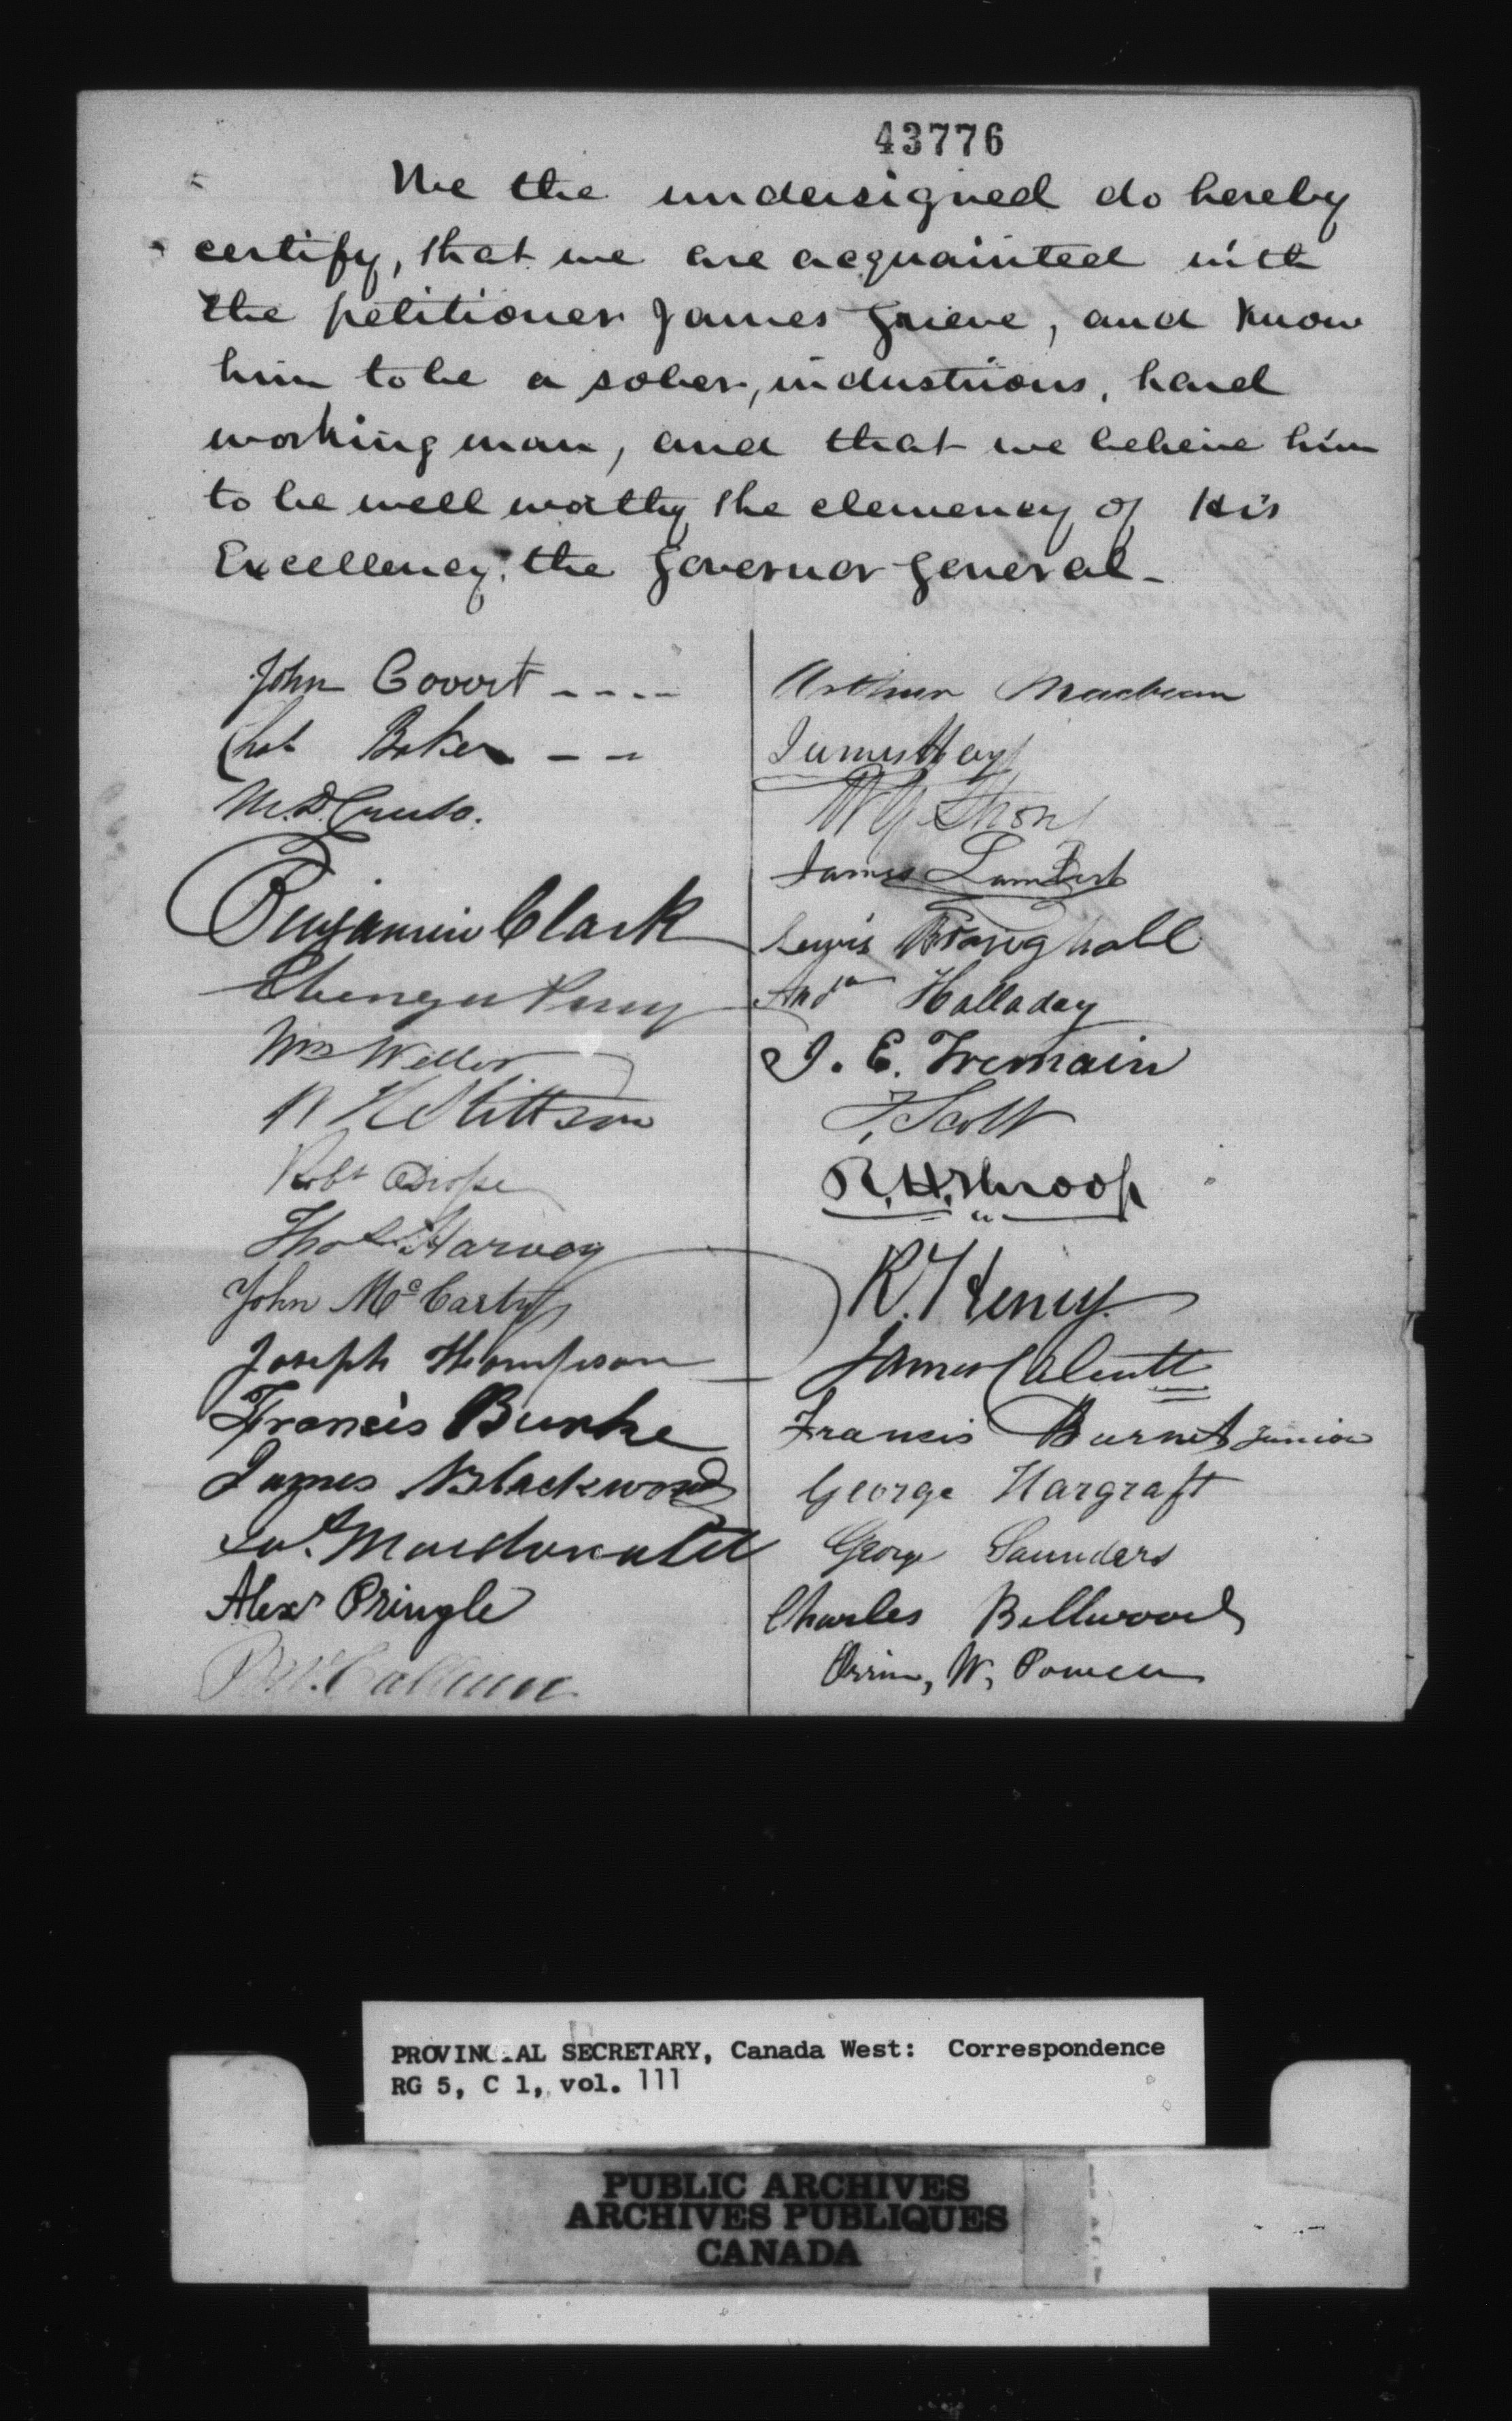 43776
We the undersigned do hereby
certify, that we are acquainted with
the petitioner James Grieve, and know
him to be a sober, industrious, hard
working man, and that we believe him
to be well worthy the clemency of His
Excellency, the Governor General -
John Covert - - - -
Chas Baker - -
M.D. Cruso.
Benjamin Clark
Ebenezer Perry
Wm Weller
Robt Drope
Thos Harvey
John McCarty
Joseph Thompson
Francis Burke
James Blackwood
Macdonald
Alexr Pringle
Arthur Macbean
James Hay
James Lambert
Lewis
Andw Halladay
J. E. Tremain
F. Scott
R. H. Throop
R. Henry
James Calcutt
Francis Burnet Junior
George Hargraft
George Saunders
Charles Bellwood
Orrin, W, Powell
PROVINCIAL SECRETARY, Canada West: Correspondence
RG 5, C 1, vol. 111
PUBLIC ARCHIVES
ARCHIVES PUBLIQUES
CANADA